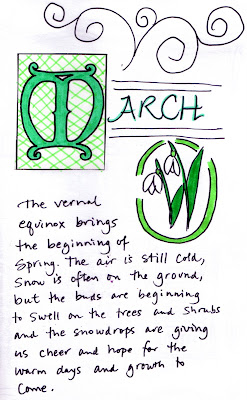 MARCH
The vernal
equinox brings
the beginning of
Spring. The air is still cold,
Snow is often on the ground,
but the buds are beginning
to swell on the trees and shrubs
and the snowdrops are giving
us cheer and hope for the
warm days and growth to
come.